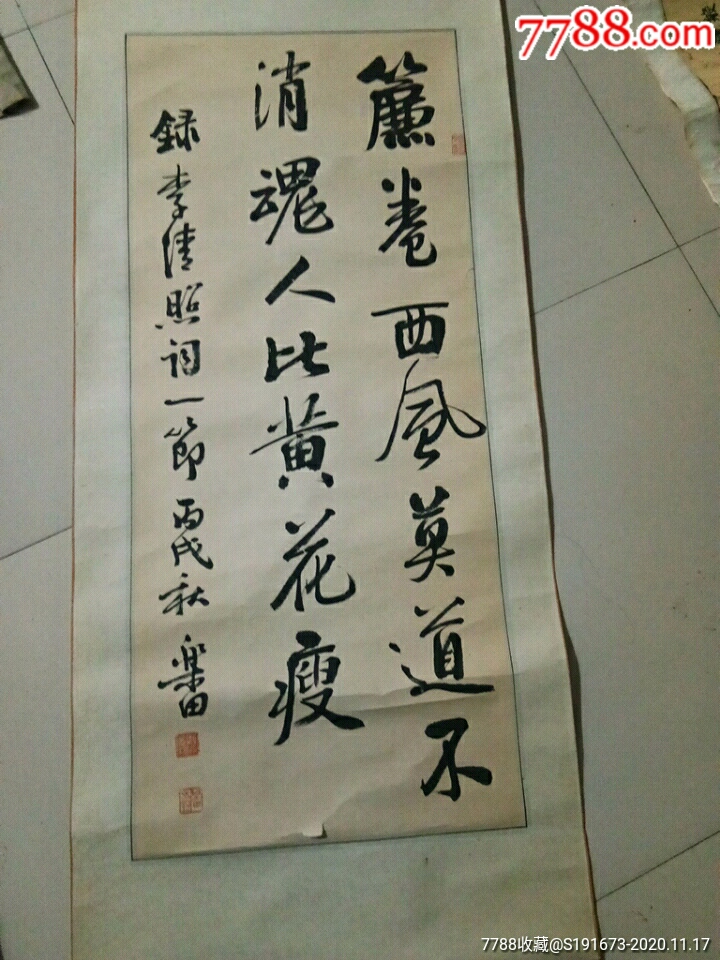 7788.com
簾卷西風莫道不
消魂人比黄花瘦
録李清照词一節丙戌秋樂田
7788收藏@S191673-2020.11.17